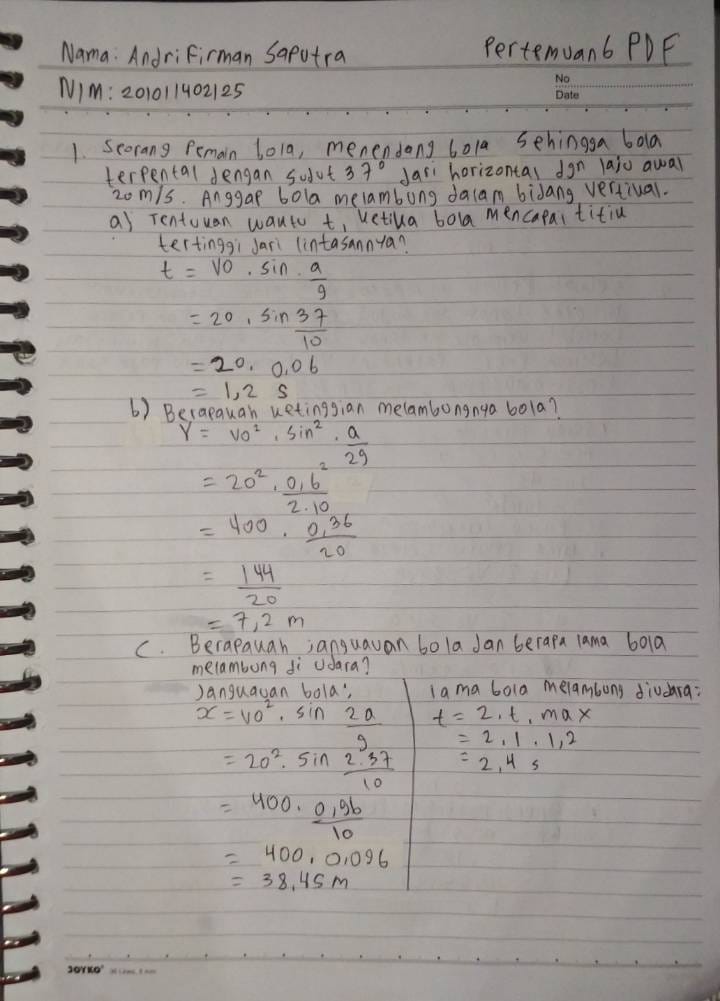 Nama: Andri Firman Saputra
Pertemuan 6 PDF
NIM: 201011402125
No
Date
1. Seorang Pemain bola, menendang bola sehingga bola
terpental dengan sudut 37° dari horizontal dgn laju awal
20 m/s. Anggap bola melambung dalam bidang vertikal.
a) Tentukan waktu t, ketika bola mencapai titik
tertinggi dari lintasannya?
t = V0 . sin . a/g
= 20 . sin 37/10
= 20 . 0,06
= 1,2 s
b) Berapakah ketinggian melambungnya bola?
Y = V0² . sin² . a/2g
= 20² . 0,6²/2.10
= 400 . 0,36/20
= 144/20
= 7,2 m
c. Berapakah jangkauan bola dan berapa lama bola
melambung di udara?
Jangkauan bola:
x = V0² . sin 2a/g
= 20² . sin 2.37/10
= 400 . 0,96/10
= 400 . 0,096
= 38,45 m
lama bola melambung diudara:
t = 2 . t . max
= 2 . 1 . 1,2
= 2,4 s
JOYKO